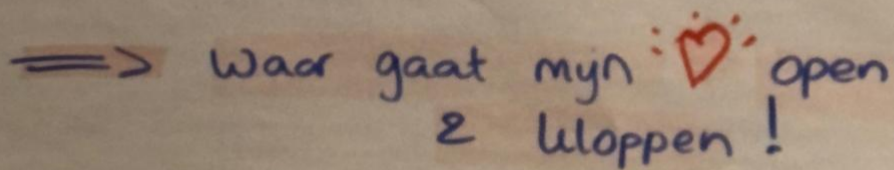 => waar gaat mijn ♡ open
& kloppen!